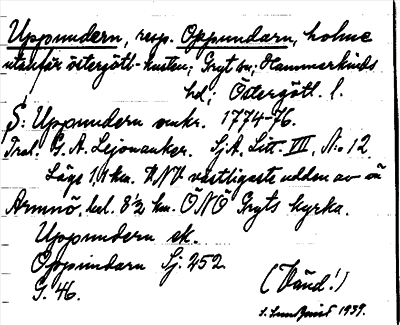 Uppundern, resp. Oppundarn, holme
utanför östergötl-kusten; Gryt sn; Hammarkinds
hd; Östergötl. l.
S: Uppundern omkr. 1774-76.
Trol. G. A. Lejonanker. Sj.A. Litt. VIII, No 12
Läge 1,1 km. NNV västligaste udden av ön
Armnö, bel. 8½ km. ÖNÖ Gryts kyrka.
Uppundern sk.
Oppundarn Sj. 252
G. 46.
(Vänd!)
S. Lundqvist 1939.